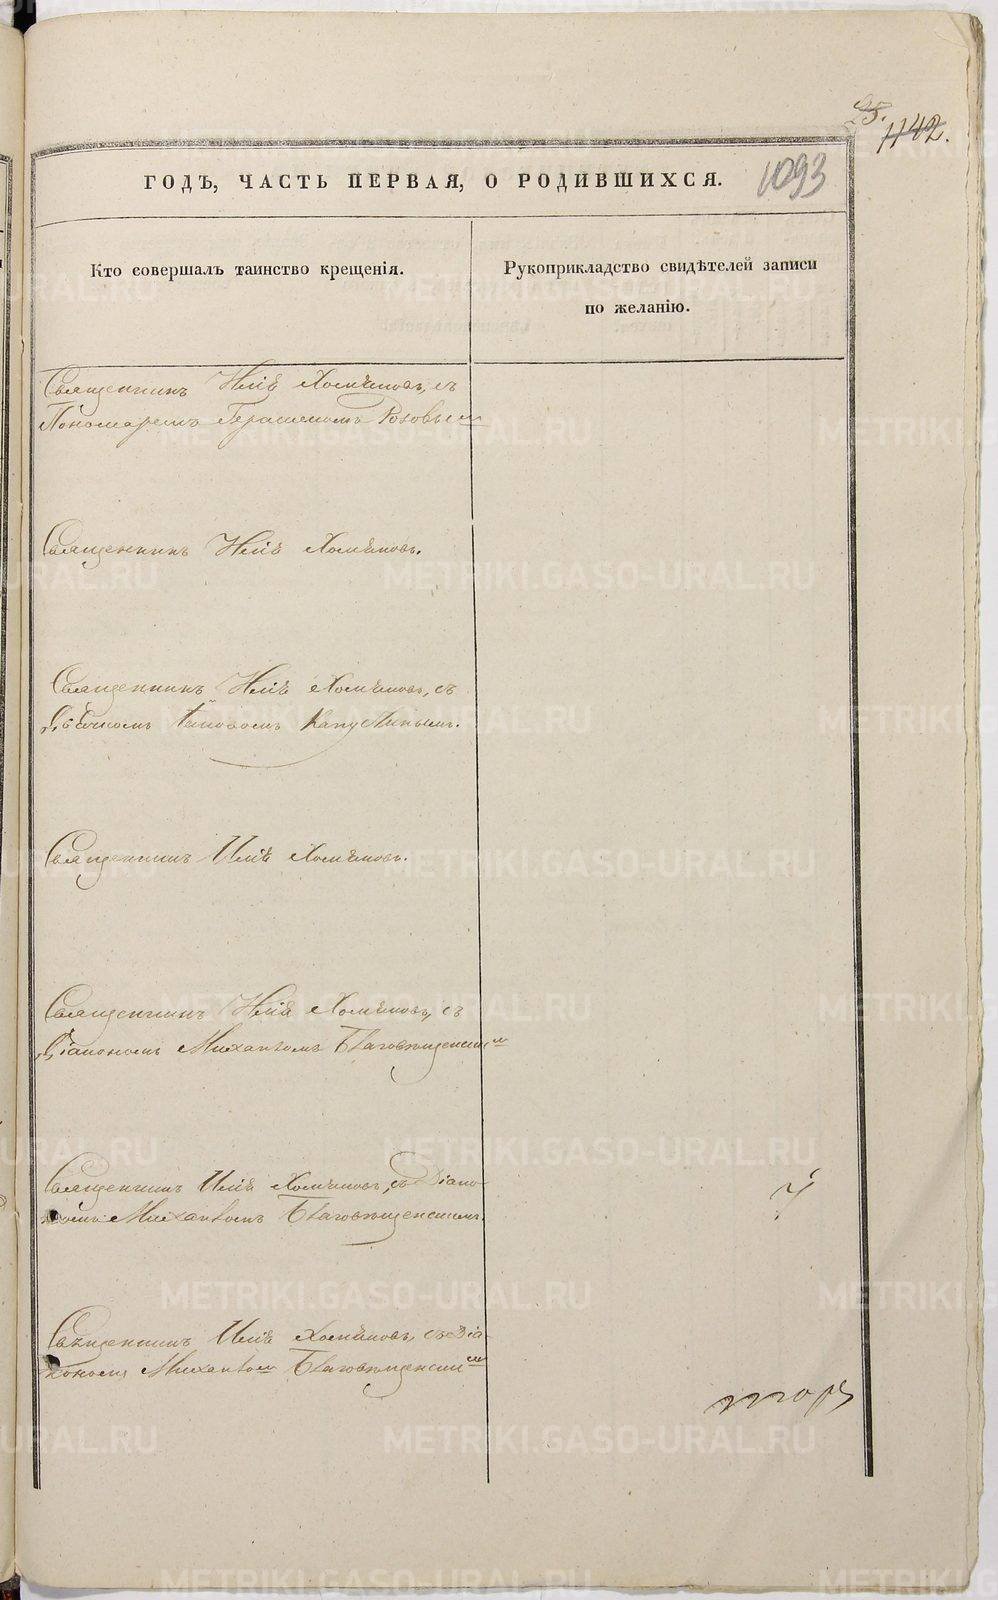 25.
1142.
1093
ГОДЪ, ЧАСТЬ ПЕРВАЯ, О РОДИВШИХСЯ.
Кто совершалъ таинство крещенія.
Рукоприкладство свидѣтелей записи
по желанію.
Священникъ Илія Хомяковъ, съ
Пономаремъ Герасимомъ Розовымъ
Священникъ Илія Хомяковъ.
Священникъ Илія Хомяковъ, съ
Дьячкомъ Капустинымъ.
Священникъ Илія Хомяковъ.
Священникъ Илія Хомяковъ, съ
Діакономъ Михаиломъ Благовѣщенскимъ
Священникъ Илія Хомяковъ, съ Діако-
номъ Михаиломъ Благовѣщенскимъ.
Священникъ Илія Хомяковъ, съ Діа-
кономъ Михаиломъ Благовѣщенскимъ
METRIKI.GASO-URAL.RU